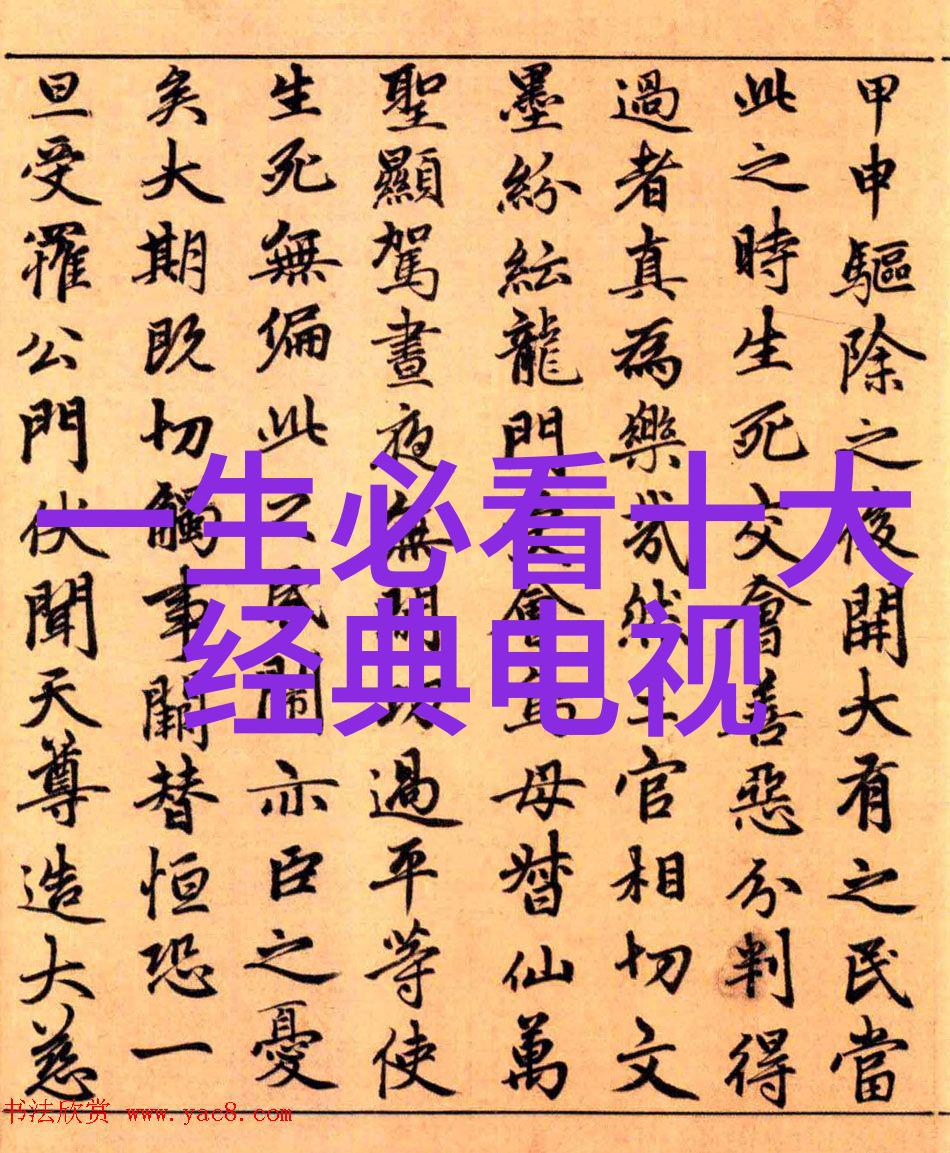 甲申驅除之後開大有之民當
此之時生死交會善惡分判得
過者真為樂哉然三官相切文
墨紛紜龍門會母督仙萬
聖顯駕晝夜無閒功過平等使
生死無偏此民亦臣之憂
矣大期既切觸事闕替恒恐一
旦受罹公門伏聞天尊造大慈
一生必看十大
经典电视
书法欣赏 www.yac8.com